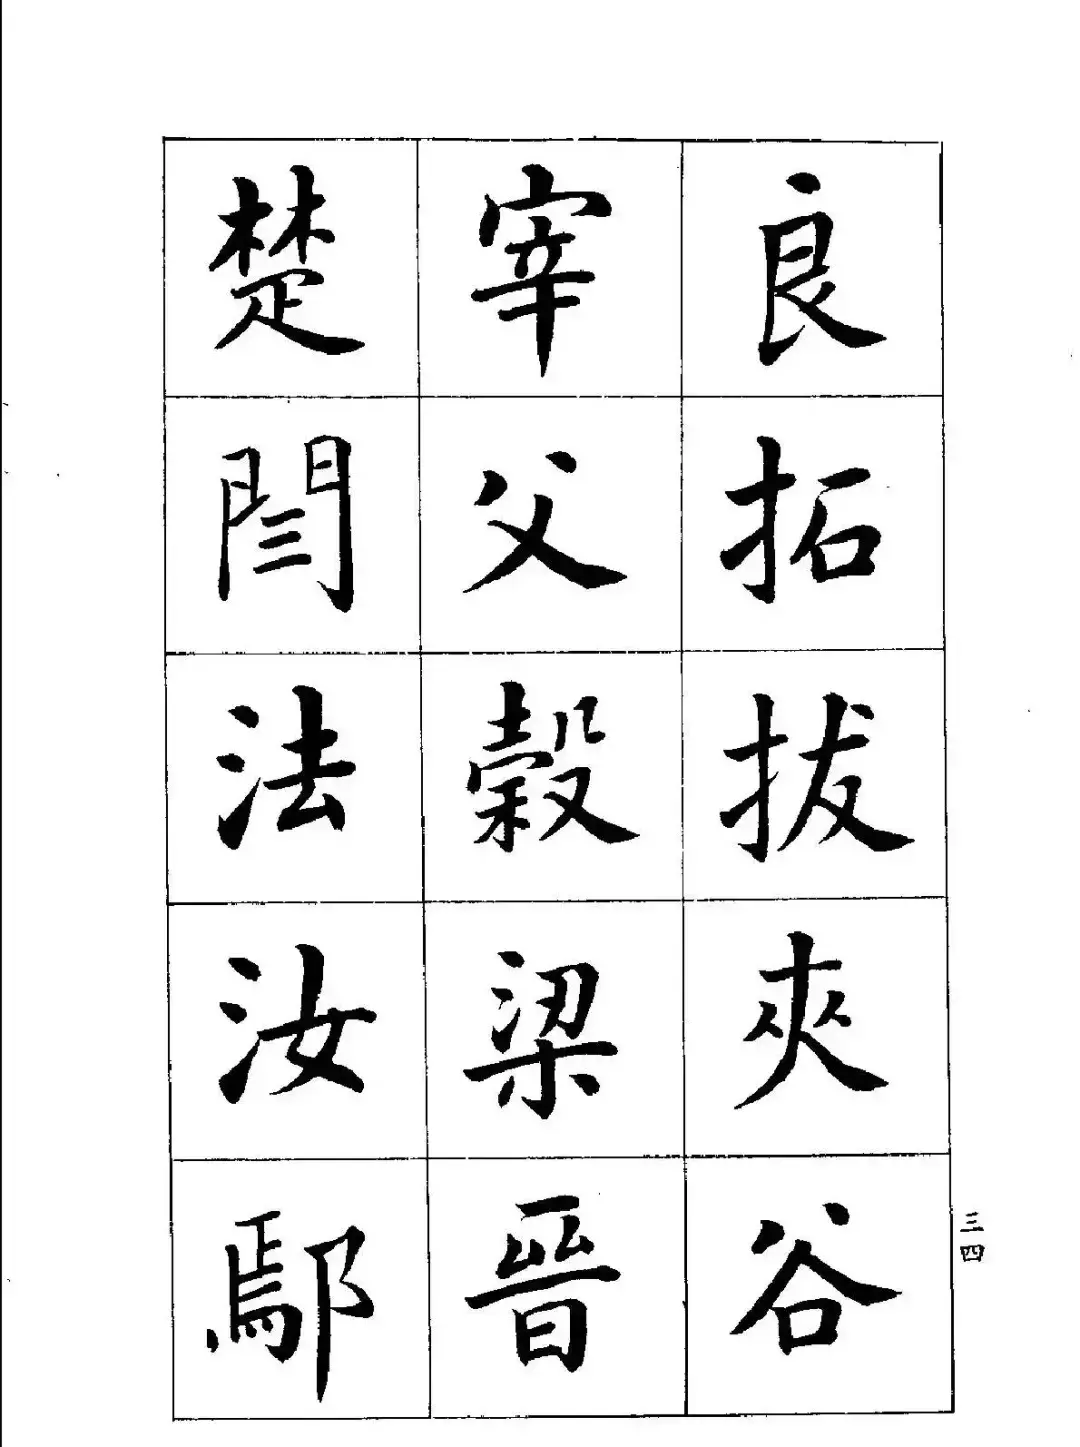 良拓拔夾谷
宰父榖梁晉
楚閆法汝鄢
三四